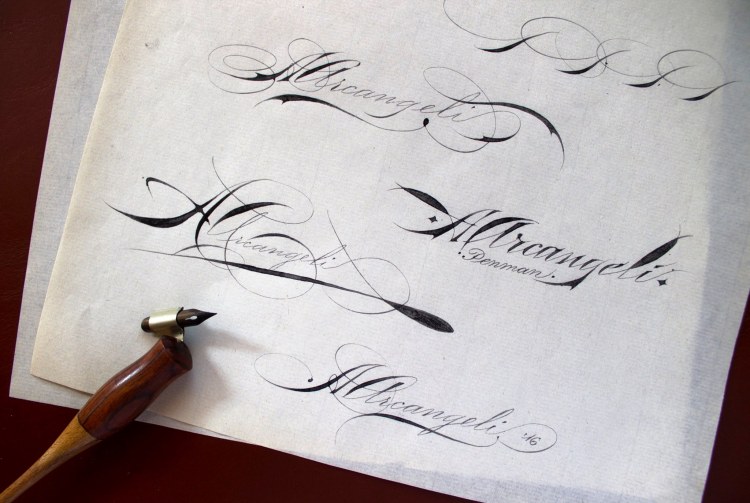 Arcangeli
Arcangeli
Arcangeli
Denman
Arcangeli. '16